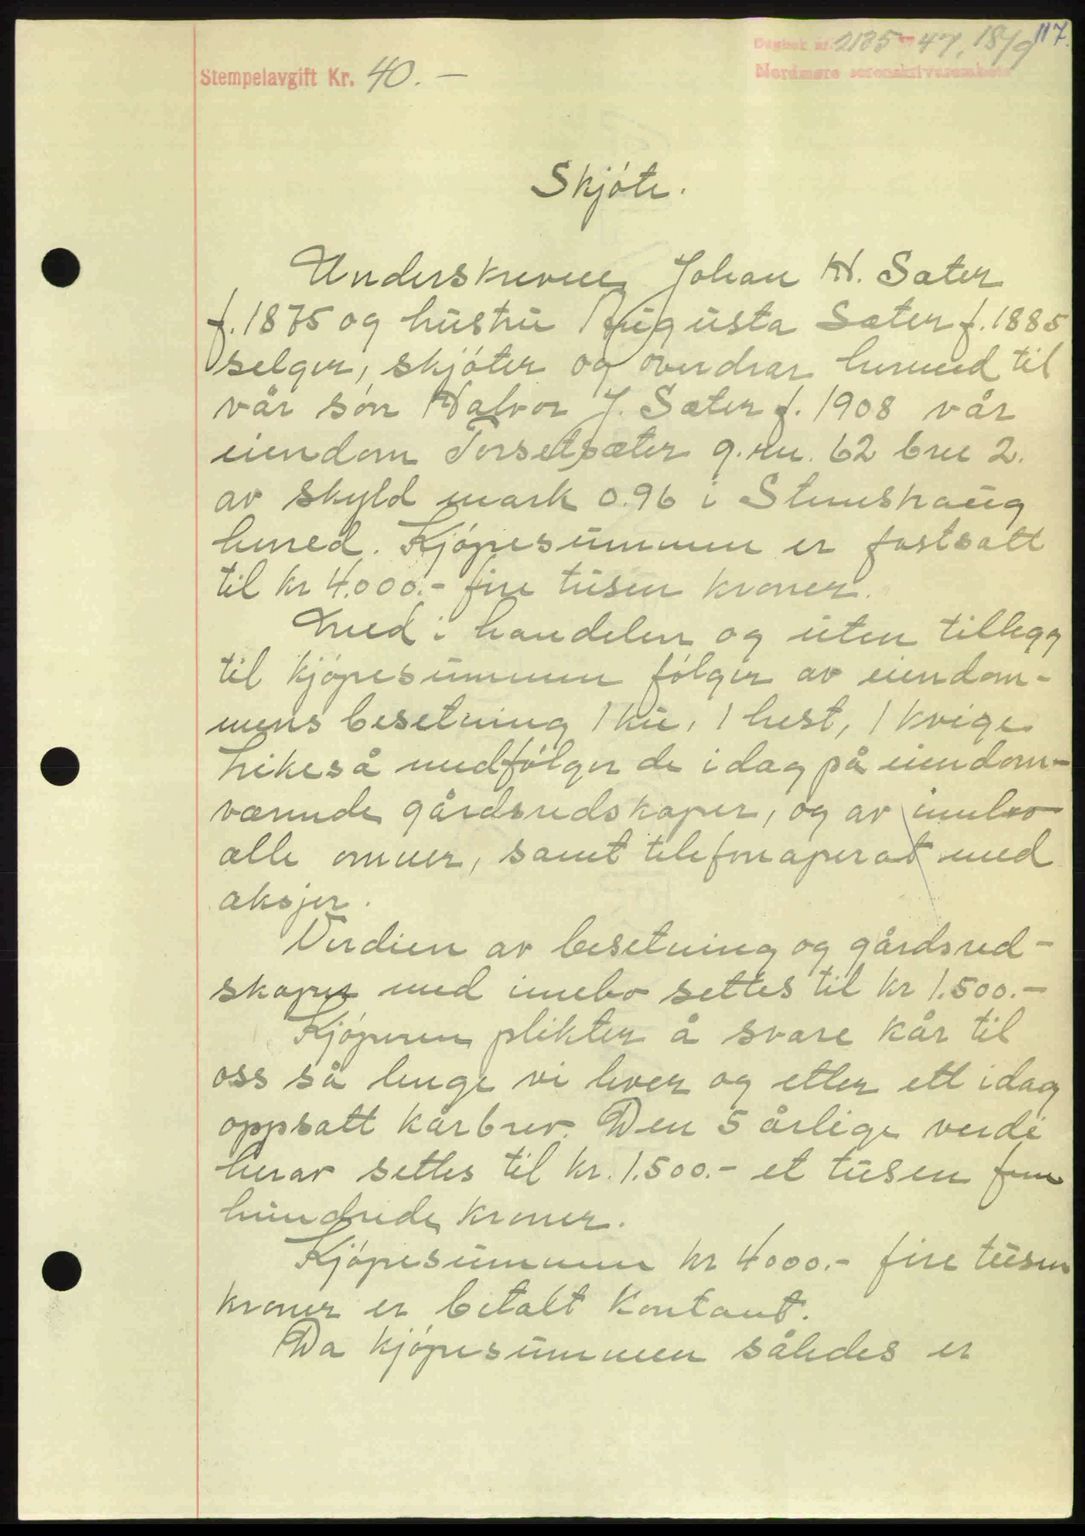 117.
Dagbok nr. 2135 47, 18/9
Stempelavgift Kr. 40.-
Nordmøre sorenskriverembete
Skjøte.
Underskrevne Johan H. Sæter
f. 1875 og hustru Augusta Sæter f. 1885
selger, skjøter og overdrar herved til
vår søn Halvor J. Sæter f. 1908 vår
eiendom Torsetsæter g.nr. 62 bnr 2.
av skyld mark 0.96 i Stemshaug
herred. Kjøpesummen er fastsatt
til kr 4.000.- fire tusen kroner.
Med i handelen og uten tillegg
til kjøpesummen følger av eiendom-
mens besetning 1 ku, 1 hest, 1 kvige
Likeså medfølger de idag på eiendom-
værende gårdsredskaper, og av innbo
alle ovner, samt telefonaperat med
aksjer.
Verdien av besetning og gårdsred-
skaper med inebo settes til kr 1.500.-
Kjøperen plikter å svare kår til
oss så lenge vi lever og etter ett idag
oppsatt kårbrev. Den 5 årlige verdi
herav settes til kr. 1.500.- et tusen fem
hundrede kroner.
Kjøpesummen kr 4000.- fire tusen
kroner er betalt kontant.
Da kjøpesummen således er